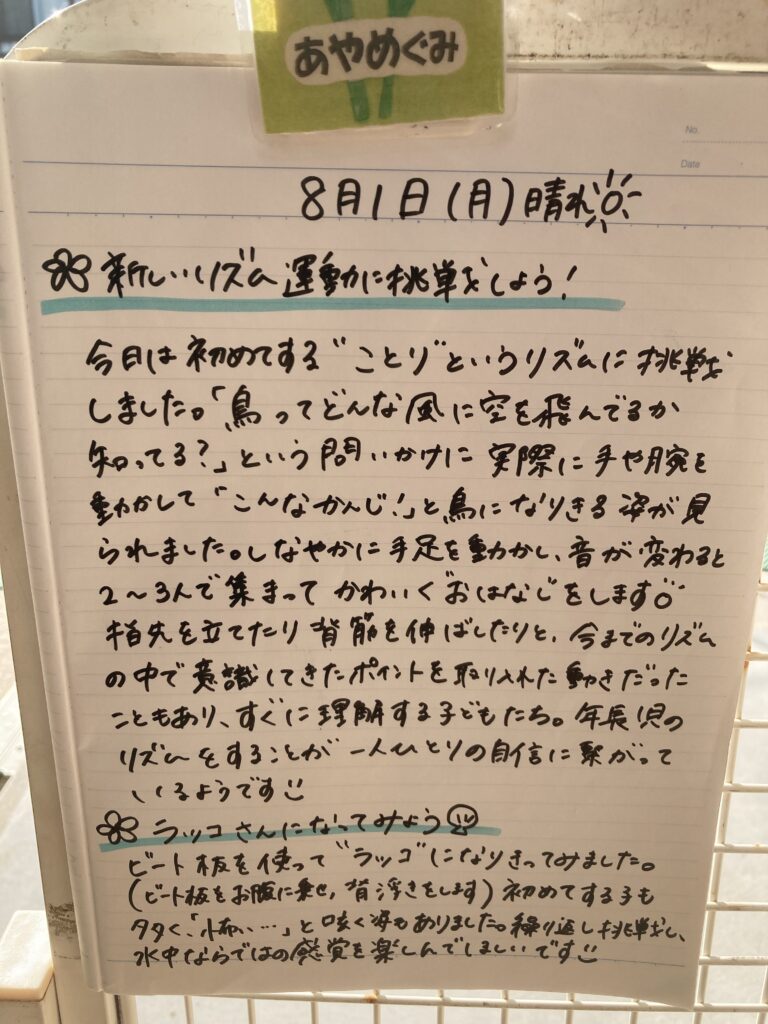 あやめぐみ
No.
Date
8月1日(月)晴れ
新しいリズム運動に挑戦しよう!
今日は初めてする"ことり"というリズムに挑戦
しました。「鳥ってどんな風に空を飛んでるか
知ってる?」という問いかけに実際に手や腕を
動かして「こんなかんじ!」と鳥になりきる姿が見
られました。しなやかに手足を動かし、音が変わると
2〜3人で集まってかわいくおはなしをします
指先を立てたり背筋を伸ばしたりと、今までのリズム
の中で意識してきたポイントを取り入れた動きだった
こともあり、すぐに理解する子どもたち。年長児の
リズムをすることが一人ひとりの自信に繋がって
いるようです
ラッコさんになってみよう
ビート板を使って"ラッコ"になりきってみました。
(ビート板をお腹に乗せ、背浮きをします)初めてする子も
多く、「怖い…」と呟く姿もありました。繰り返し挑戦し、
水中ならではの感覚を楽しんでほしいです